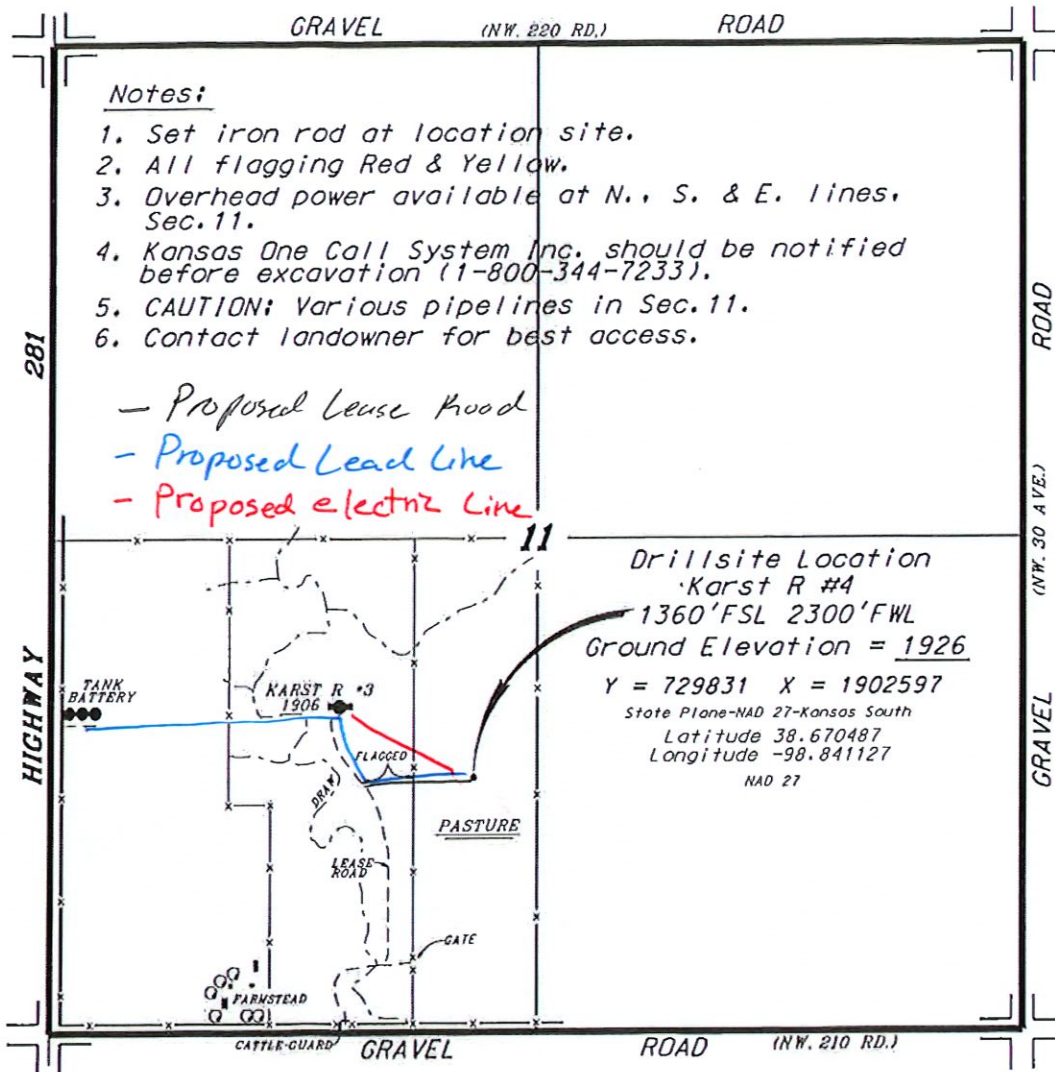 GRAVEL (NW. 220 RD.) ROAD
Notes:
1. Set iron rod at location site.
2. All flagging Red & Yellow.
3. Overhead power available at N., S. & E. lines,
Sec.11.
4. Kansas One Call System Inc. should be notified
before excavation (1-800-344-7233).
5. CAUTION: Various pipelines in Sec.11.
6. Contact landowner for best access.
281
HIGHWAY
ROAD
(NW. 30 AVE.)
GRAVEL
- Proposed Lease Road
- Proposed Lead Line
- Proposed electric Line
11
Drillsite Location
Karst R #4
1360'FSL 2300'FWL
Ground Elevation = 1926
Y = 729831 X = 1902597
State Plane-NAD 27-Kansas South
Latitude 38.670487
Longitude -98.841127
NAD 27
TANK
BATTERY
KARST R #3
1906
FLAGGED
DRAW
PASTURE
LEASE
ROAD
GATE
FARMSTEAD
CATTLE-GUARD
GRAVEL ROAD (NW. 210 RD.)